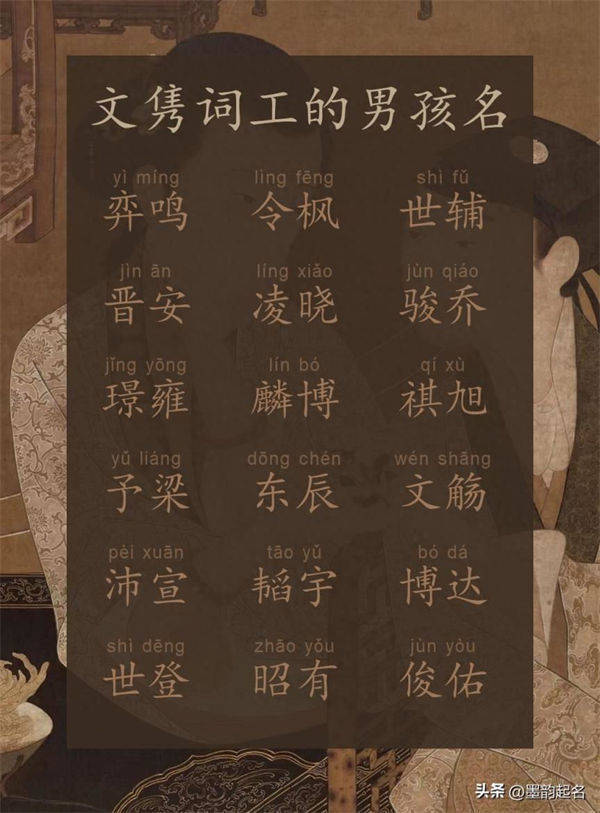 文隽词工的男孩名
yì míng lìng fēng shì fǔ
弈鸣 令枫 世辅
jìn ān líng xiǎo jùn qiáo
晋安 凌晓 骏乔
jǐng yōng lín bó qí xù
璟雍 麟博 祺旭
yǔ liáng dōng chén wén shāng
予梁 东辰 文觞
pèi xuān tāo yǔ bó dá
沛宣 韬宇 博达
shì dēng zhāo yǒu jùn yòu
世登 昭有 俊佑
头条 @墨韵起名